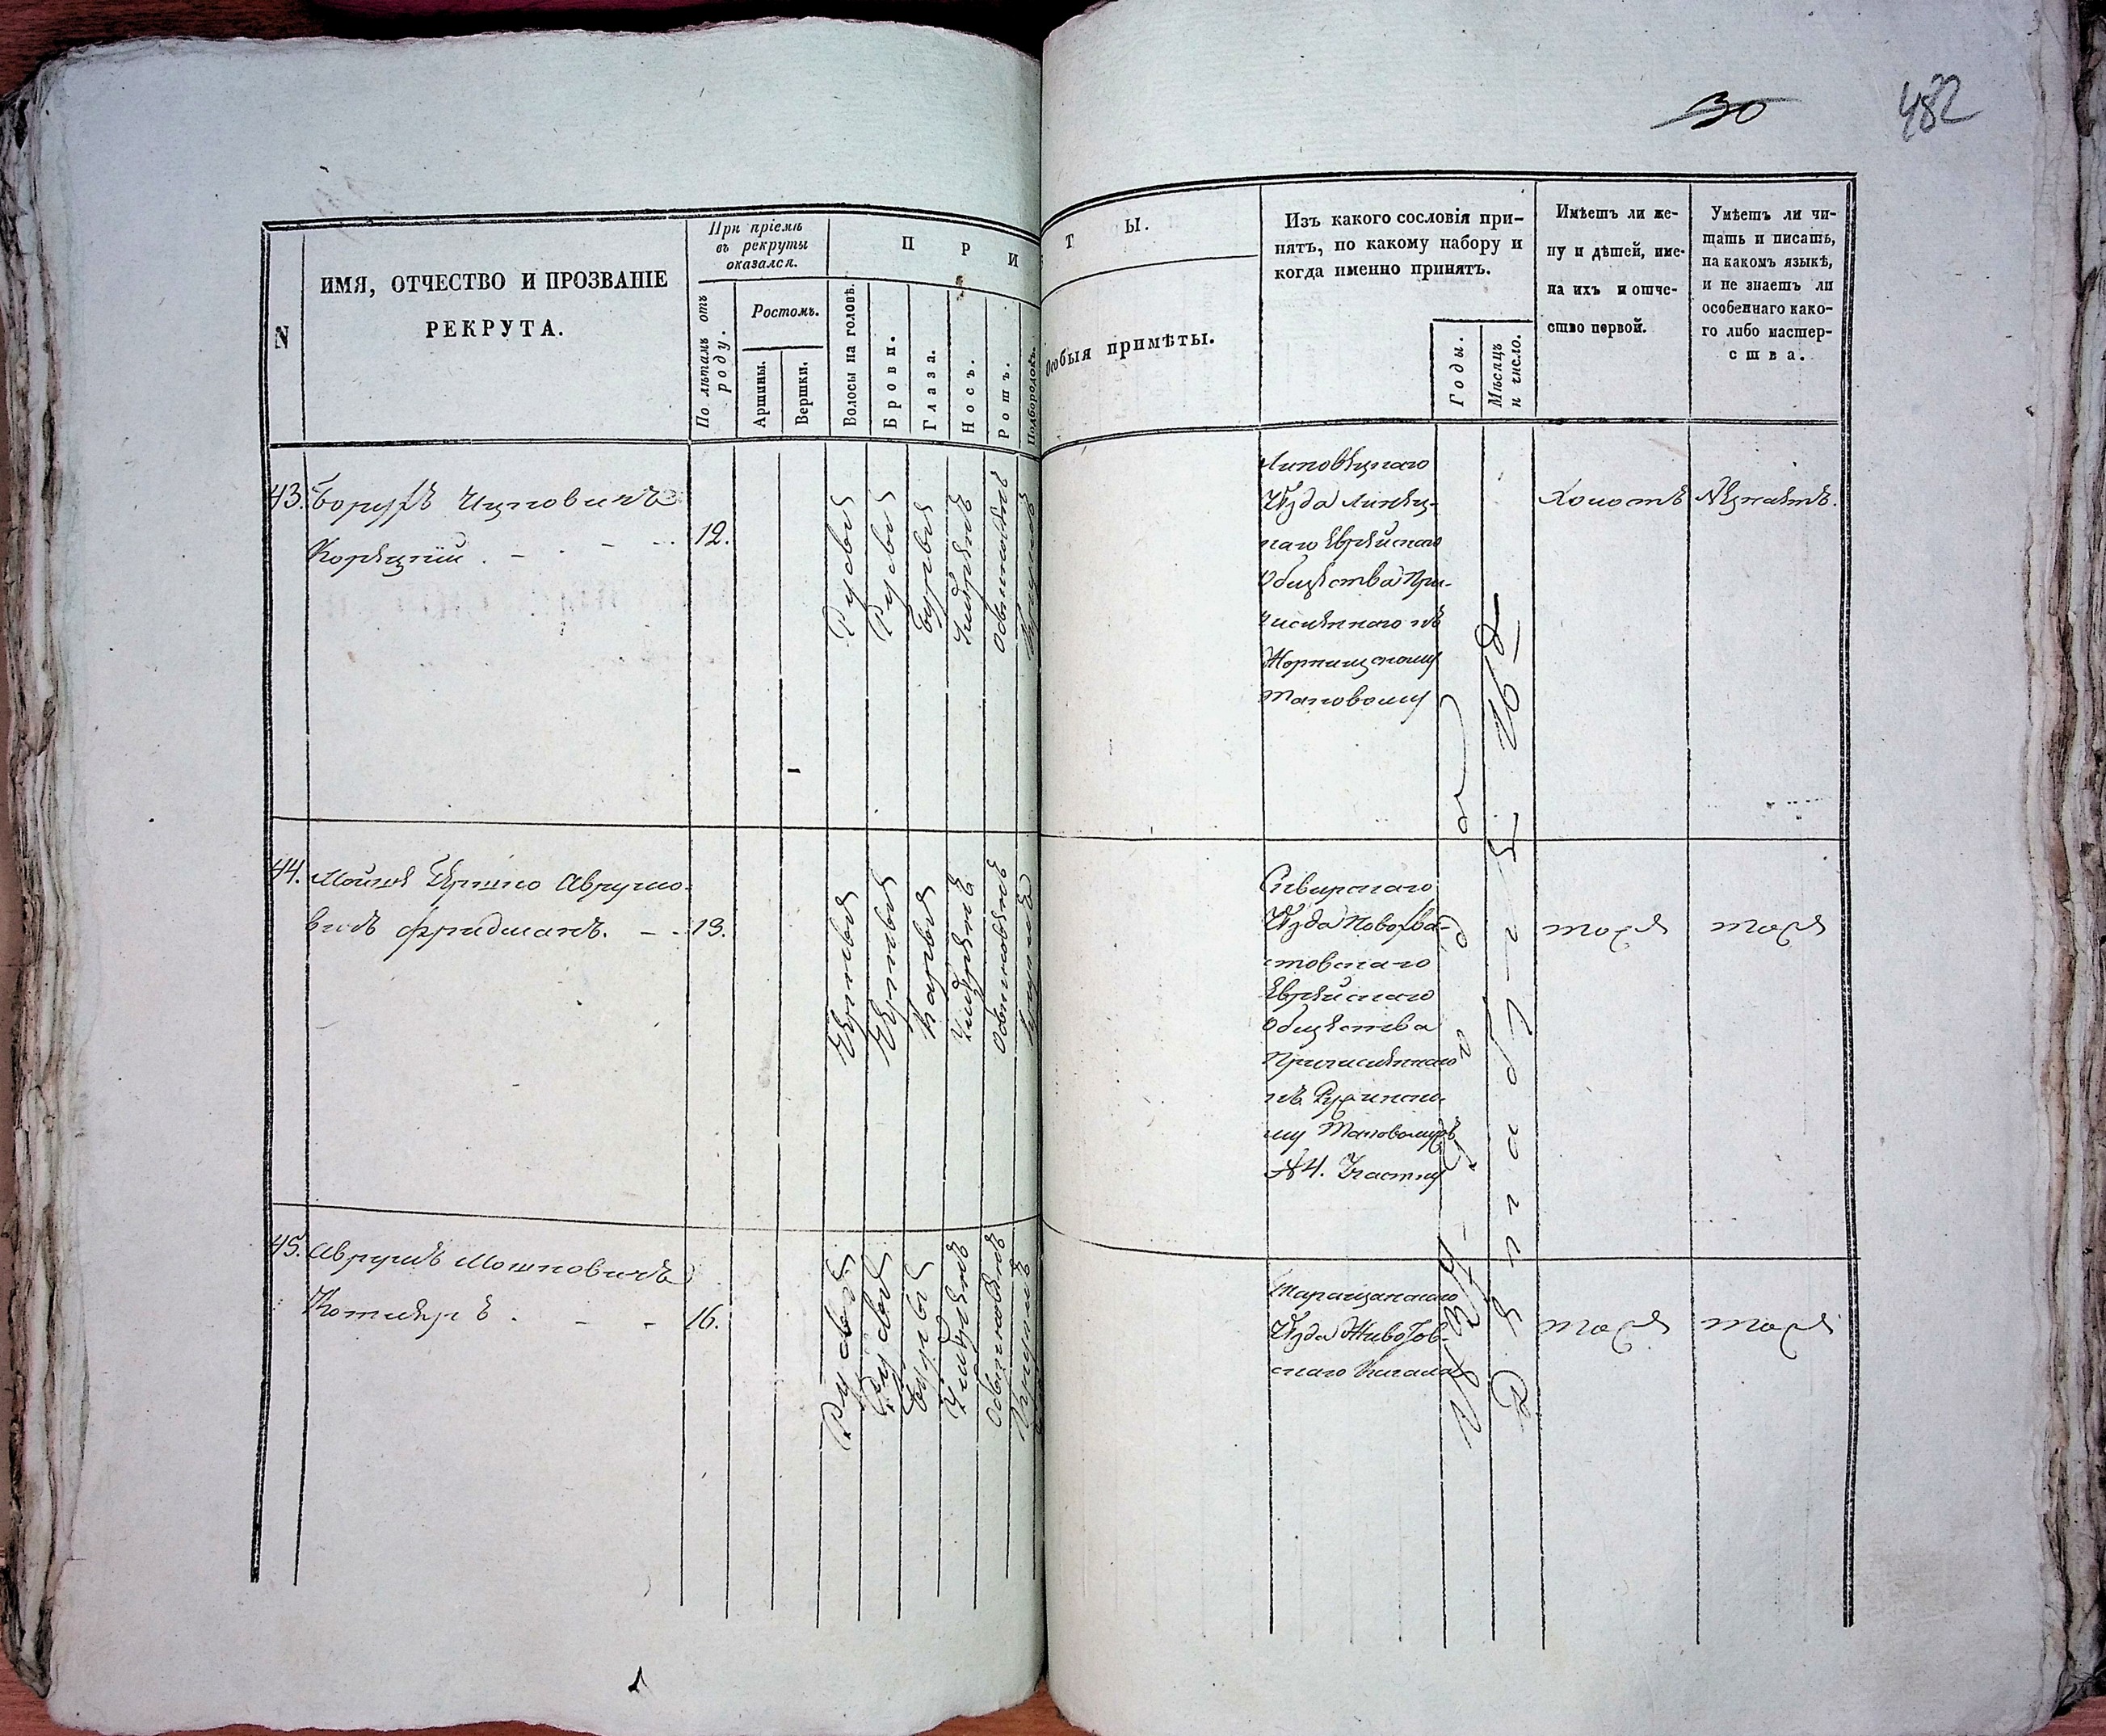 30
482
N
ИМЯ, ОТЧЕСТВО И ПРОЗВАНІЕ
РЕКРУТА.
При пріемѣ
въ рекруты
оказался.
По лѣтамъ отъ
роду.
Ростомъ.
Аршины.
Вершки.
П Р И
Волосы на головѣ.
Брови.
Глаза.
Носъ.
Ротъ.
Подбородокъ.
Т Ы.
Особыя примѣты.
Изъ какого сословія при-
нятъ, по какому набору и
когда именно принятъ.
Годы.
Мѣсяцъ
и число.
Имѣетъ ли же-
ну и дѣтей, име-
на ихъ и отче-
ство первой.
Умѣетъ ли чи-
тать и писать,
на какомъ языкѣ,
и не знаетъ ли
особеннаго како-
го либо мастер-
ства.
43.
Борухъ Ицковичъ
Корецкій
12.
Русые
Русые
Умѣренъ
Обыкновенъ
Липовецкаго
Уѣзда Линец-
каго Еврейскаго
Общества При-
численнаго къ
Жорнищскому
Таковому
Холостъ
Незнаетъ.
44.
Мойше Гершко Аврумо-
вичъ Фридманъ.
13.
Черные
Черные
Каріе
Умѣренъ
Обыкновенъ
Круглый
Сквирскаго
Уѣзда Новохва-
стовскаго
Еврейскаго
Общества
Причисленнаго
къ Ружинско-
му Таковому
№ 4. Участку
тоже
тоже
45.
Аврумъ Мошковичъ
Котляръ
16.
Русые
Русые
Умѣренъ
Обыкновенъ
Круглый
Таращанскаго
Уѣзда Животов-
скаго Кагала
тоже
тоже
Декабря